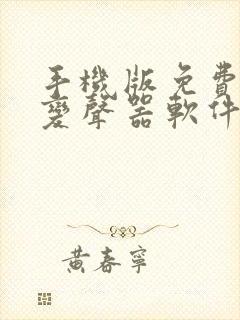 手機版免費
變聲器軟件
黃春寧